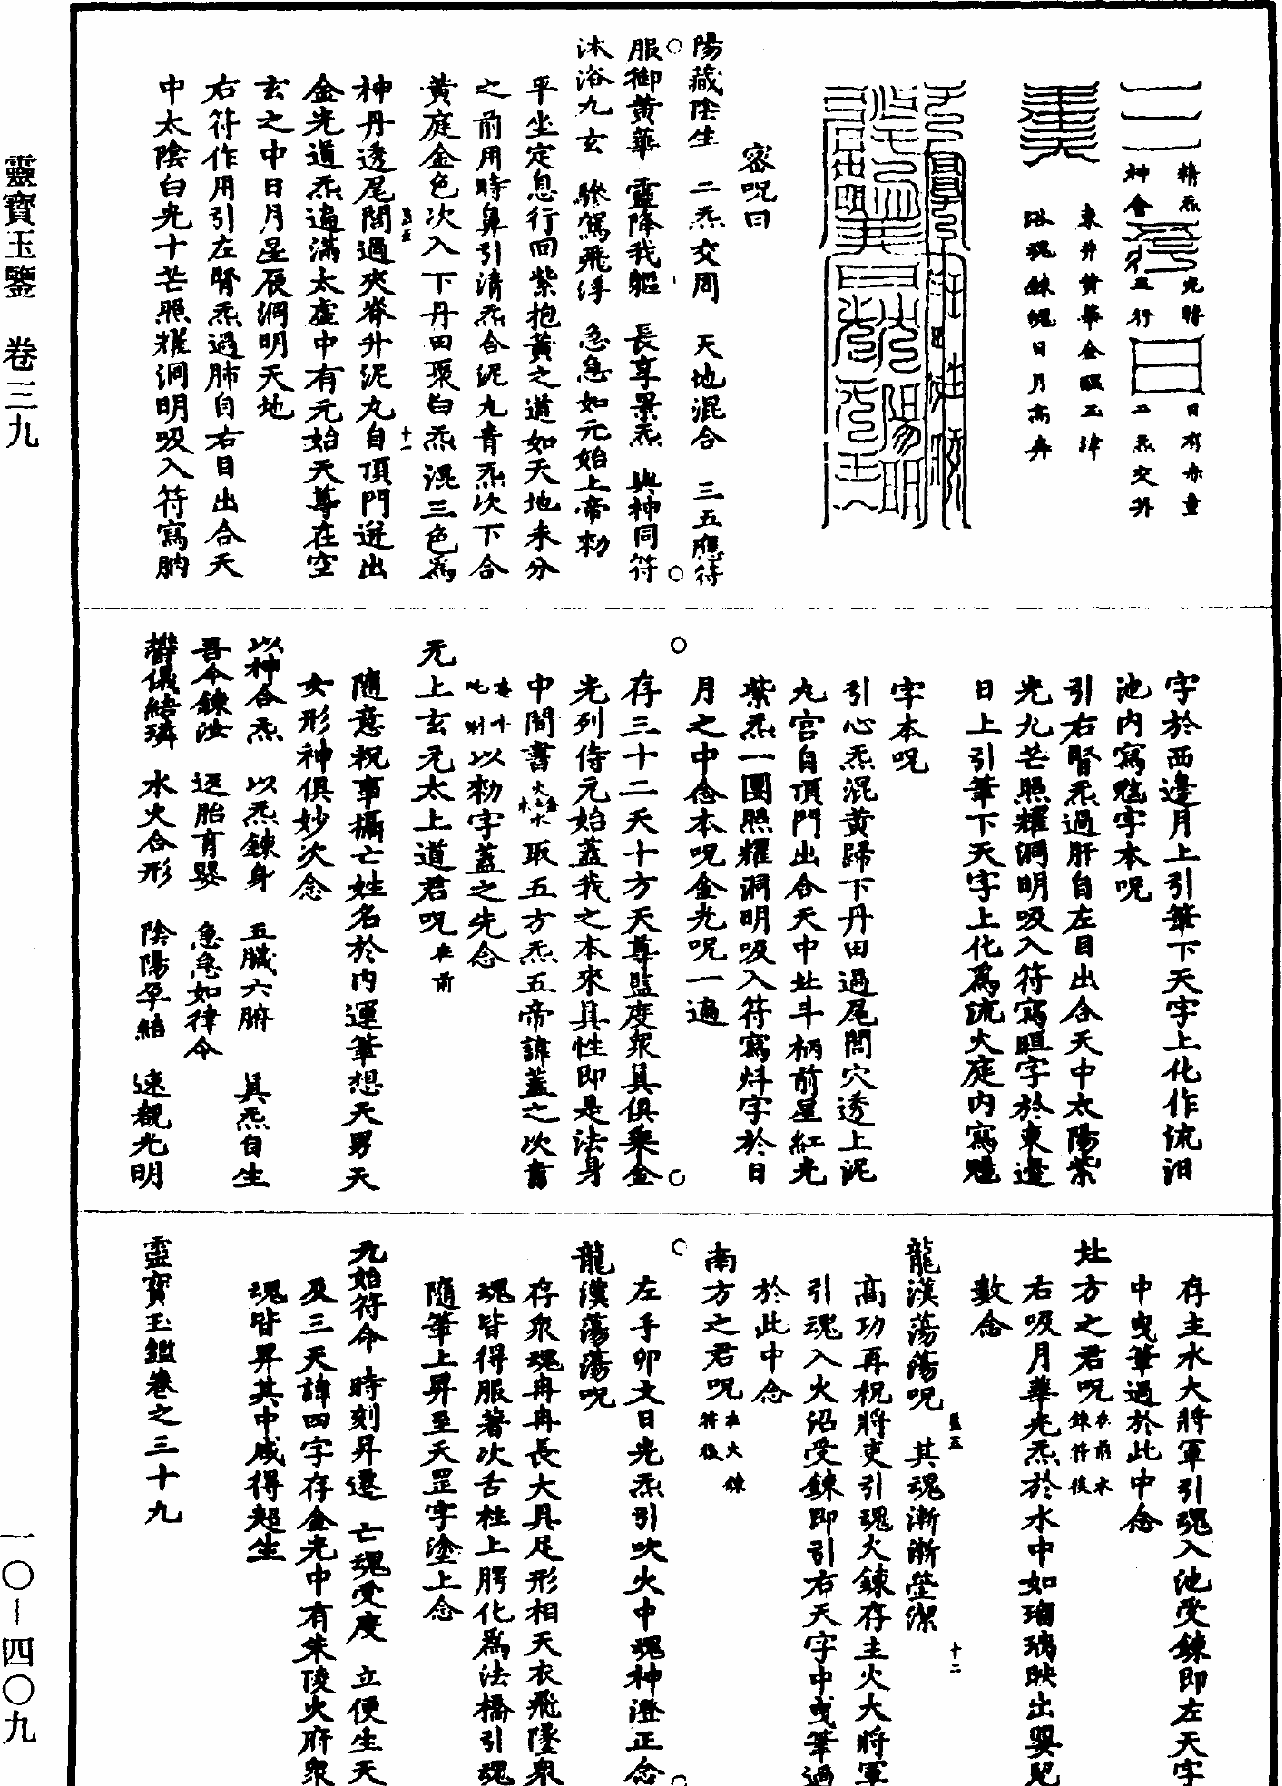 靈寶玉鑒 卷三九
一〇—四〇九
精炁
神會
光勝
五行
日有赤童
二炁交升
東井黃華金暉玉津
浴魂鍊魄日月高奔
密呪曰
陽藏陰生 二炁交周 天地混合 三五應符
服御黃華 靈降我軀 長享景炁 與神同符
沐浴九玄 驂駕飛浮 急急如元始上帝勑
平坐定息行回紫抱黃之道如天地未分
之前用時鼻引清炁合泥丸青炁次下合
黃庭金色次入下丹田聚白炁混三色為
神丹透尾閭過夾脊升泥丸自頂門迸出
金光道炁遍滿太虛中有元始天尊在空
玄之中日月星辰洞明天地
右符作用引左腎炁過肺自右目出合天
中太陰白光十芒照耀洞明吸入符寫朒
字於西邊月上引筆下天字上化作流汨
池內寫魓字本呪
引右腎炁過肝自左目出合天中太陽紫
光九芒照耀洞明吸入符寫晅字於東邊
日上引筆下天字上化為流火庭內寫魓
字本呪
引心炁混黃歸下丹田過尾閭穴透上泥
丸宮自頂門出合天中北斗柄前星紅光
紫炁一團照耀洞明吸入符寫炓字於日
月之中念本呪金光呪一遍
存三十二天十方天尊監度眾真俱乘金
光列侍元始蓋我之本來真性即是法身
中間書 取五方炁五帝諱蓋之次書
以勑字蓋之先念
元上玄元太上道君呪在前
隨意祝事攝亡姓名於內運筆想天男天
女形神俱妙次念
以神合炁 以炁鍊身 五臟六腑 真炁自生
吾今鍊汝 返胎育嬰 急急如律令
鬱儀結璘 水火合形 陰陽孕結 速覩光明
存主水大將軍引魂入池受鍊即左天字
中曳筆過於此中念
北方之君呪在前水鍊符後
右吸月華光炁於水中如瑠璃映出嬰兒
數念
龍漢蕩蕩呪 其魂漸漸瑩潔
高功再祝將吏引魂火鍊存主火大將軍
引魂入火沼受鍊即引右天字中曳筆過
於此中念
南方之君呪在火鍊符後
左手卯文日光炁引吹火中魂神澄正念
龍漢蕩蕩呪
存眾魂冉冉長大具足形相天衣飛墜眾
魂皆得服著次舌柱上腭化為法橋引魂
隨筆上昇至天罡字塗上念
元始符命 時刻昇遷 亡魂受度 立便生天
及三天諱四字存金光中有朱陵火府眾
魂皆昇其中咸得超生
靈寶玉鑑卷之三十九